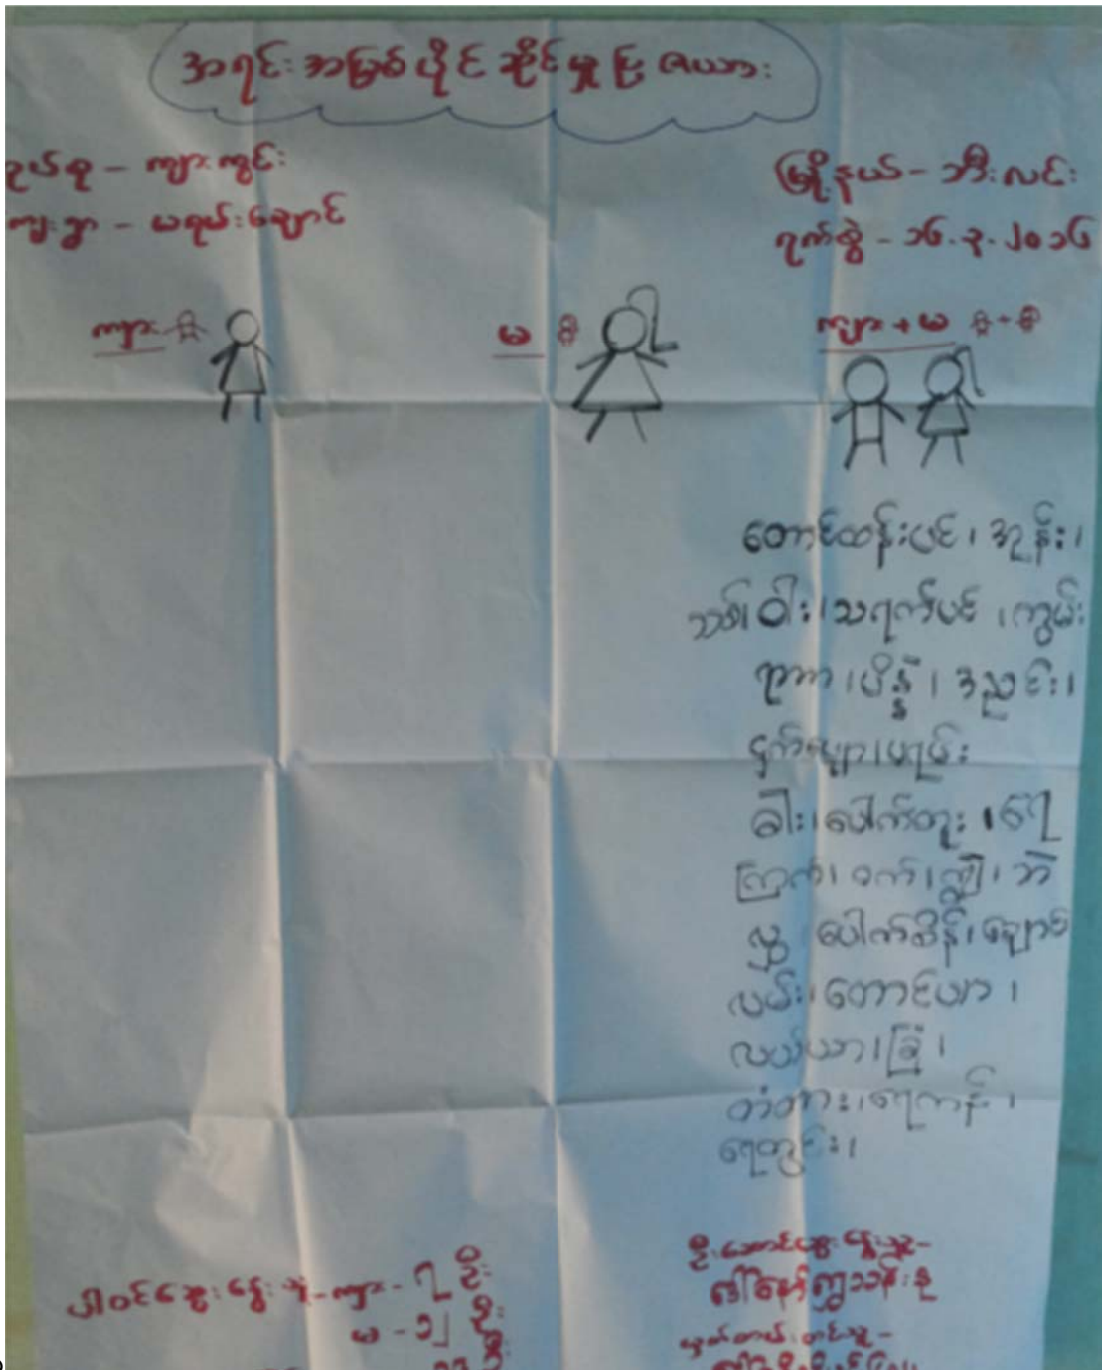 အရင်းအမြစ်ပိုင်ဆိုင်မှုပြဇယား
ကျားကွင်း
မြို့နယ် - ဘီးလင်း
ကျေးရွာ - မရမ်းချောင်
ရက်စွဲ - ၁၆.၃.၂၀၁၆
ကျား
မ
ကျား + မ
တောင်ထန်းပင်၊ အုန်း၊
သစ်၊ ဝါး၊ သရက်ပင်၊ ကွမ်း
ရာဘာ၊ ပိန္နဲ၊ ဒညင်း၊
ငှက်ပျော၊ မရမ်း
ဓါး၊ ပေါက်တူး၊ ရေ
ကြက်၊ ဝက်၊ ကျွဲ၊ ဘဲ
လွှ ပေါက်ဆိန်၊ ချောင်
လမ်း၊ တောင်ယာ၊
လယ်ယာ၊ ခြံ၊
တံတား၊ ရေကန်၊
ရေတွင်း၊
ပါဝင်ဆွေးနွေးသူ - ကျား - ၇ ဦး
မ - ၁၂ ဦး
ဦးဆောင်ဆွေးနွေးသူ -
ဒေါ်နော်
မှတ်တမ်းတင်သူ -